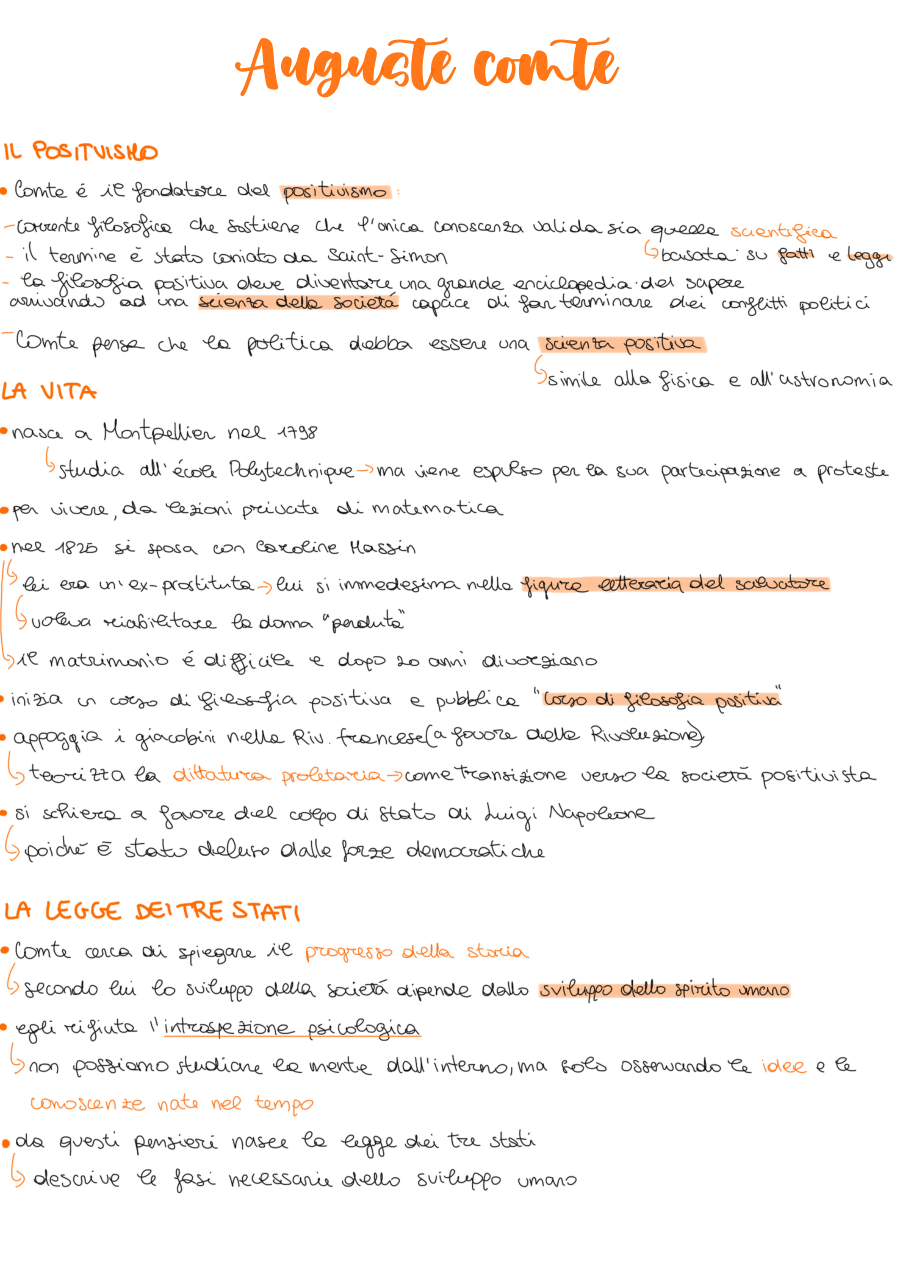 Auguste comte
IL POSITIVISMO
• Comte é il fondatore del positivismo:
- corrente filosofica che sostiene che l'unica conoscenza valida sia quella scientifica
- il termine è stato coniato da Saint-Simon
↳ basata su fatti e leggi
- la filosofia positiva deve diventare una grande enciclopedia del sapere
arrivando ad una scienza della societá capace di far terminare dei conflitti politici
- Comte pensa che la politica debba essere una scienza positiva
↳ simile alla fisica e all'astronomia
LA VITA
• nasce a Montpellier nel 1798
↳ studia all'école Polytechnique → ma viene espulso per la sua partecipazione a proteste
• per vivere, da lezioni private di matematica
• nel 1825 si sposa con Caroline Massin
↳ lei era un'ex-prostituta → lui si immedesima nella figura letteraria del salvatore
↳ voleva riabilitare la donna "perduta"
↳ il matrimonio é difficile e dopo 20 anni divorziano
• inizia un corso di filosofia positiva e pubblica "Corso di filosofia positiva"
• appoggia i giacobini nella Riv. francese (a favore della Rivoluzione)
↳ teorizza la dittatura proletaria → come transizione verso la società positivista
• si schiera a favore del colpo di Stato di Luigi Napoleone
↳ poiché è stato deluso dalle forze democratiche
LA LEGGE DEI TRE STATI
• Comte cerca di spiegare il progresso della storia
↳ secondo lui lo sviluppo della societá dipende dallo sviluppo dello spirito umano
• egli rifiuta l'introspezione psicologica
↳ non possiamo studiare la mente dall'interno, ma solo osservando le idee e le
conoscenze nate nel tempo
• da questi pensieri nasce la legge dei tre stati
↳ descrive le fasi necessarie dello sviluppo umano